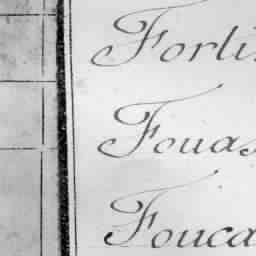 Forti
Fouas
Fouca